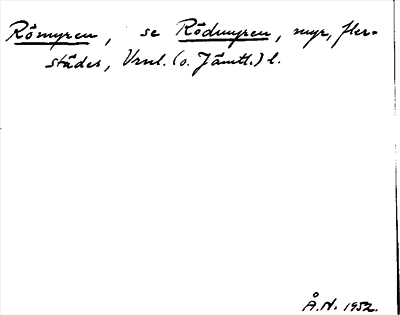 Römyren, se Rödmyren, myr, fler-
städes, Vrml. (o. Jämtl.) l.
Å.N. 1952.